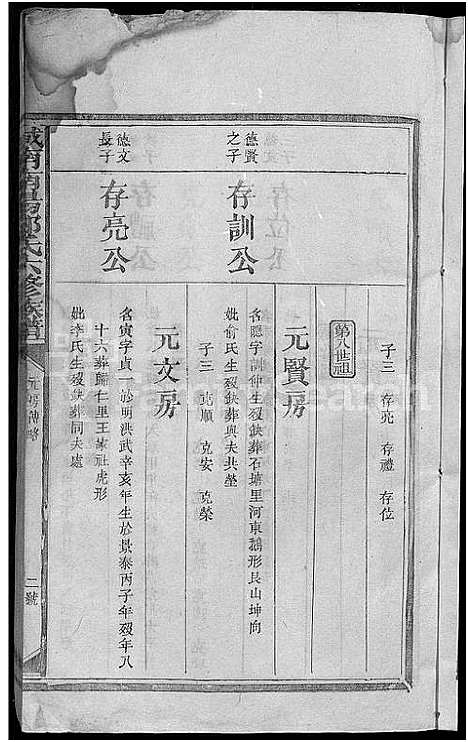 子三 存亮 存禮 存位
第八世祖
元賢房
德賢之子
存訓公
名聰字訓仲生歿缺葬石塘里河東鵝形艮山坤向
妣俞氏生歿缺葬與夫共塋
子三 克順 克安 克榮
元文房
德文長子
存亮公
名寅字貞一於明洪武辛亥年生於景泰丙子年歿年八
十六葬歸仁里王家社虎形
妣李氏生歿缺葬同夫處
城南南楊鄧氏六修族譜
元房傳略
二號